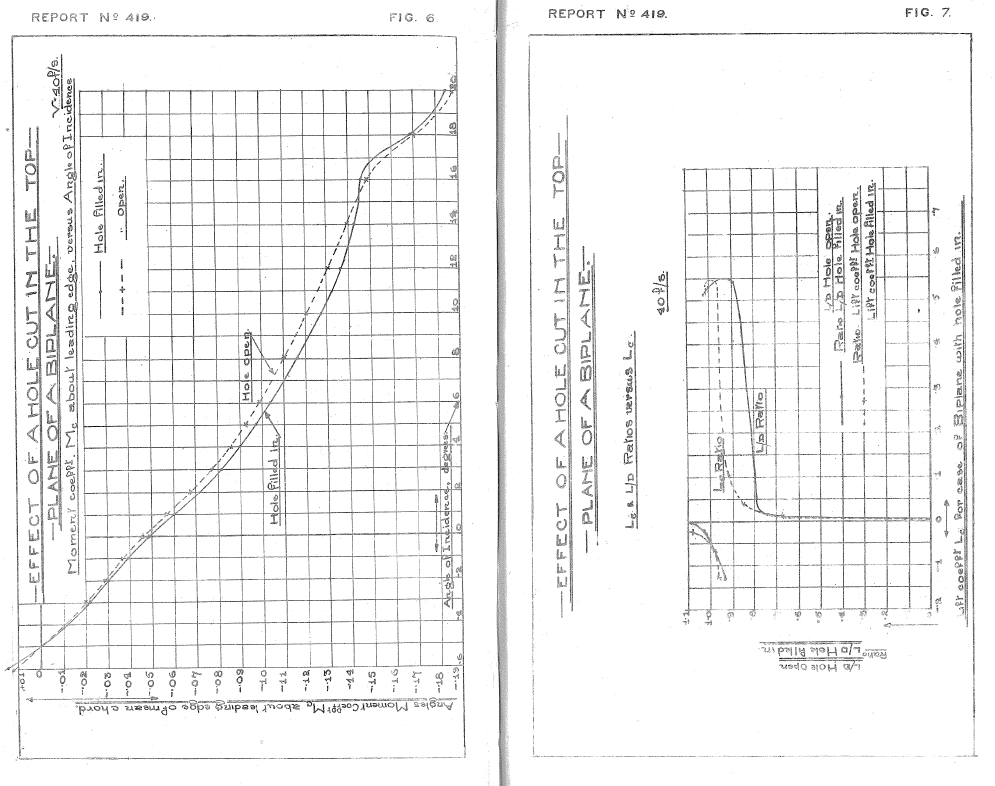 REPORT Nº 419.
FIG. 6
—EFFECT OF A HOLE CUT IN THE TOP—
—PLANE OF A BIPLANE.
V=40 f/s.
Moment coeffi. Mc about leading edge, versus Angle of Incidence
Hole filled in.
" open.
Hole open.
Hole filled in.
Angle of Incidence, degrees
-6
-4
-2
0
2
4
6
8
10
12
14
16
18
20
+.01
0
-.01
-.02
-.03
-.04
-.05
-.06
-.07
-.08
-.09
-.10
-.11
-.12
-.13
-.14
-.15
-.16
-.17
-.18
-.19
Angles Moment Coeffi Mc about leading edge of mean chord.
REPORT Nº 419.
FIG. 7.
—EFFECT OF A HOLE CUT IN THE TOP—
—PLANE OF A BIPLANE.
Lc & L/D Ratios versus Lc.
40 f/s.
Ratio L/D Hole open.
L/D Hole filled in.
Ratio. Lift coeffi Hole open.
Lift coeffi Hole filled in.
Lc Ratio
L/D Ratio
1.1
1.0
.9
.8
.7
.6
.5
.4
.3
.2
-.2
-.1
0
.1
.2
.3
.4
.5
.6
.7
Lift coeffi Lc for case of Biplane with hole filled in.
Ratio
L/D Hole Open.
L/D Hole filled in.